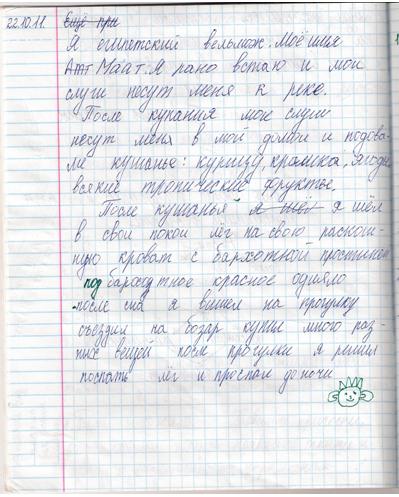 22.10.11. Ещё при
Я египетский вельмож. Моё имя
Амт Маат. Я рано встаю и мои
слуги несут меня к реке.
После купания мои слуги
несут меня в мой домой и подова-
ли кушанье: курицу, кролика, ягоды
всякие тропические фрукты.
После кушанья я шёл я шёл
в свои покои лёг на свою раскош-
ную кроват с бархотной простынёй
под бархотное красное одияло
после сна я вышел на прогулку
съездил на бозар купил много раз-
ных вещой после прогулки я решил
поспать лёг и проспал до ночи